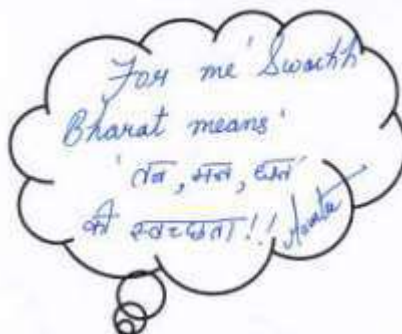 For me 'Swachh
Bharat means'
'तन, मन, धन'
की स्वच्छता!!